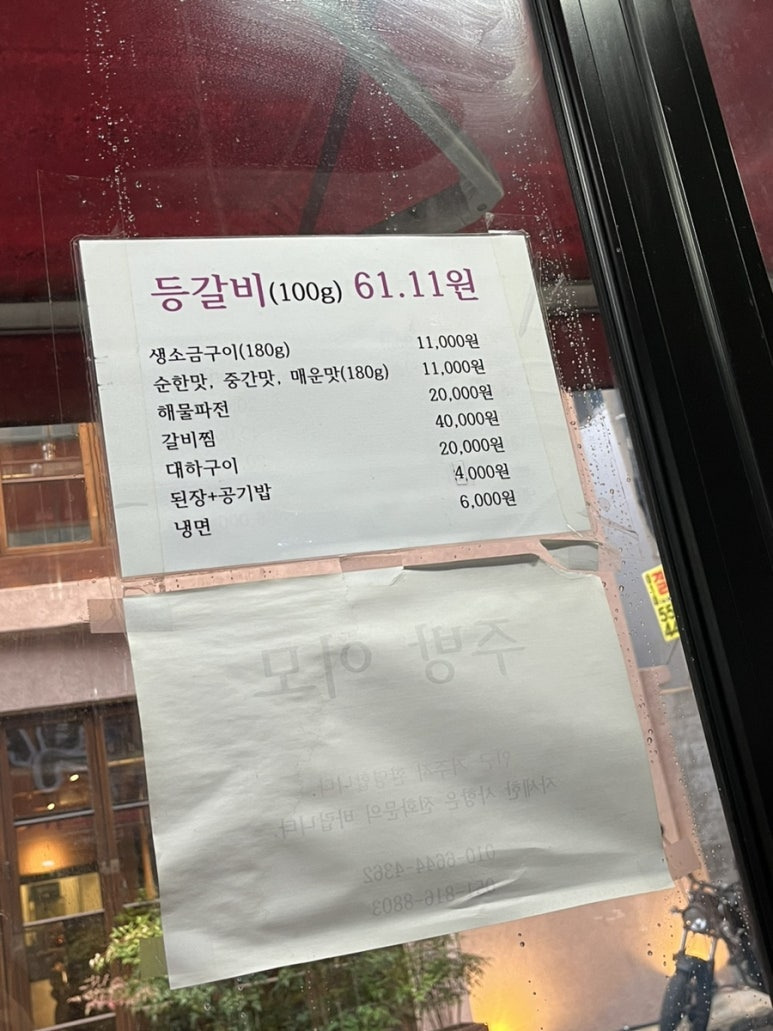 등갈비(100g) 61.11원
생소금구이(180g) 11,000원
순한맛, 중간맛, 매운맛(180g) 11,000원
해물파전 20,000원
갈비찜 40,000원
대하구이 20,000원
된장+공기밥 4,000원
냉면 6,000원
주방 이모
인근 거주자 환영합니다.
자세한 사항은 전화문의 바랍니다
010-6644-4362
051-816-8803